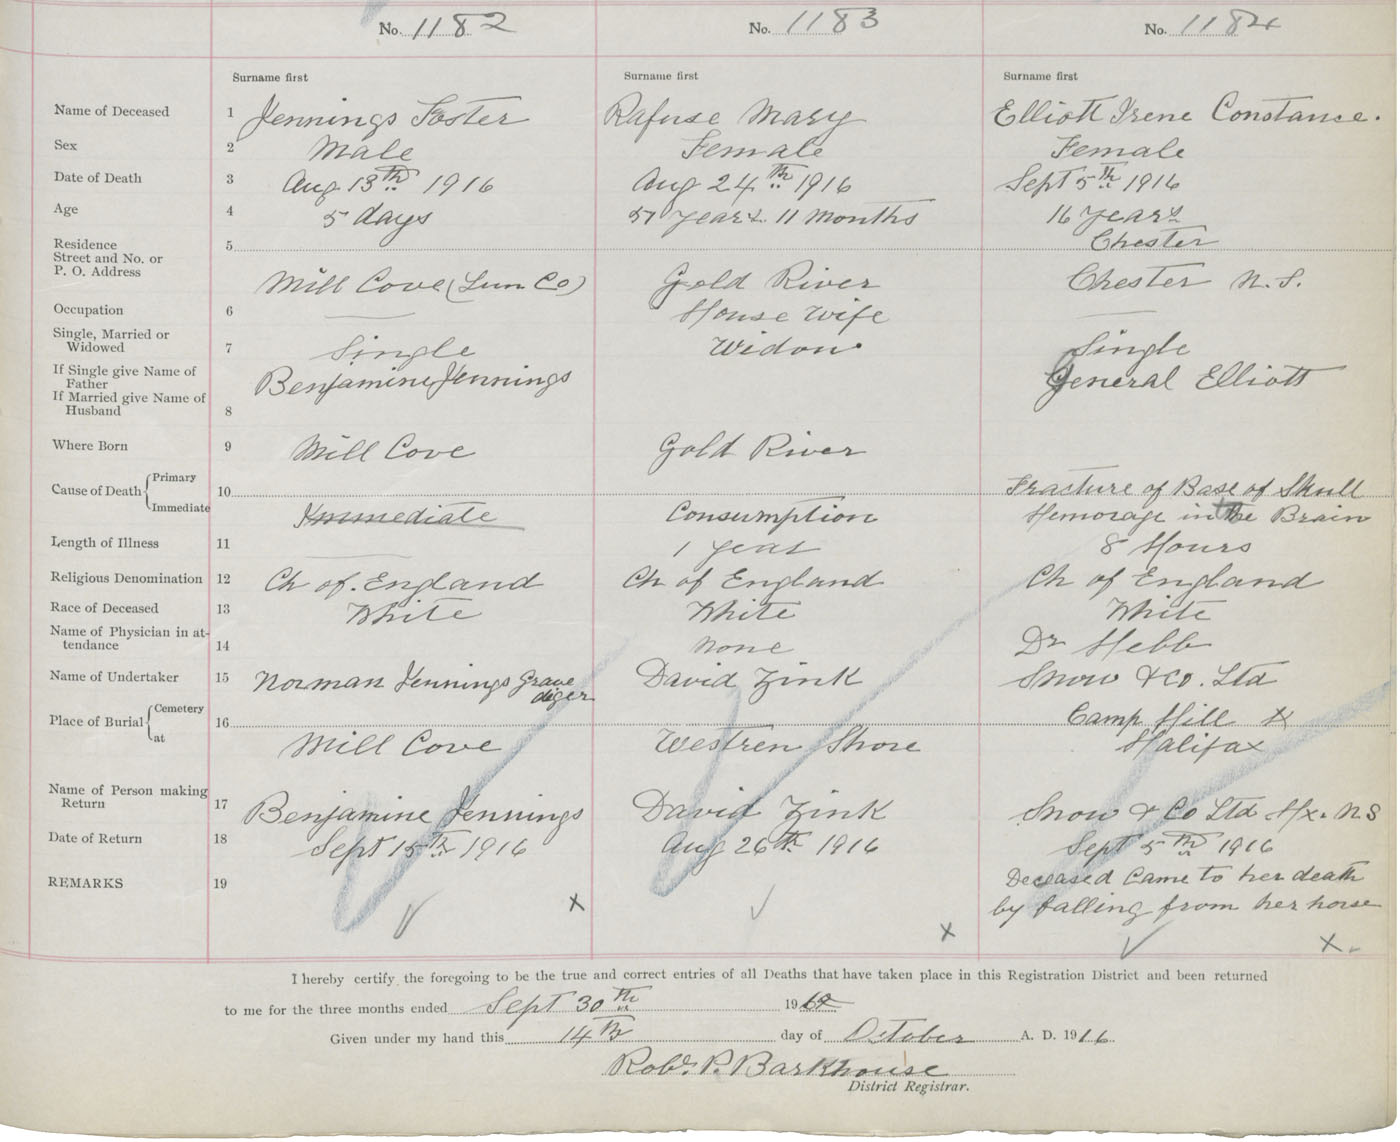 No. 1182 No. 1183 No. 1184
Surname first Surname first Surname first
Name of Deceased 1 Jennings Foster Rafuse Mary Elliott Irene Constance.
Sex 2 Male Female Female
Date of Death 3 Aug 13th 1916 Aug 24th 1916 Sept 5th 1916
Age 4 5 days 57 years 11 months 16 years
Residence 5 Chester
Street and No. or
P. O. Address Mill Cove (Lun Co) Gold River Chester N.S.
Occupation 6 House Wife
Single, Married or
Widowed 7 Single Widow Single
If Single give Name of
Father Benjamine Jennings General Elliott
If Married give Name of
Husband 8
Where Born 9 Mill Cove Gold River
Cause of Death Primary 10 Fracture of Base of Skull
Immediate Immediate Consumption Hemorage in the Brain
Length of Illness 11 1 year 8 Hours
Religious Denomination 12 Ch of. England Ch of England Ch of England
Race of Deceased 13 White White White
Name of Physician in at-
tendance 14 None Dr Hebb
Name of Undertaker 15 Norman Jennings Grave diger David Zink Snow & Co. Ltd
Place of Burial Cemetery 16 Camp Hill
at Mill Cove Westren Shore Halifax
Name of Person making
Return 17 Benjamine Jennings David Zink Snow & Co Ltd Hx. N S
Date of Return 18 Sept 15th 1916 Aug 26th 1916 Sept 5th 1916
REMARKS 19 Deceased Came to her death
by falling from her horse
x x x
I hereby certify the foregoing to be the true and correct entries of all Deaths that have taken place in this Registration District and been returned
to me for the three months ended Sept 30th 19
Given under my hand this 14th day of October A. D. 1916.
Robt P. Barkhouse
District Registrar.